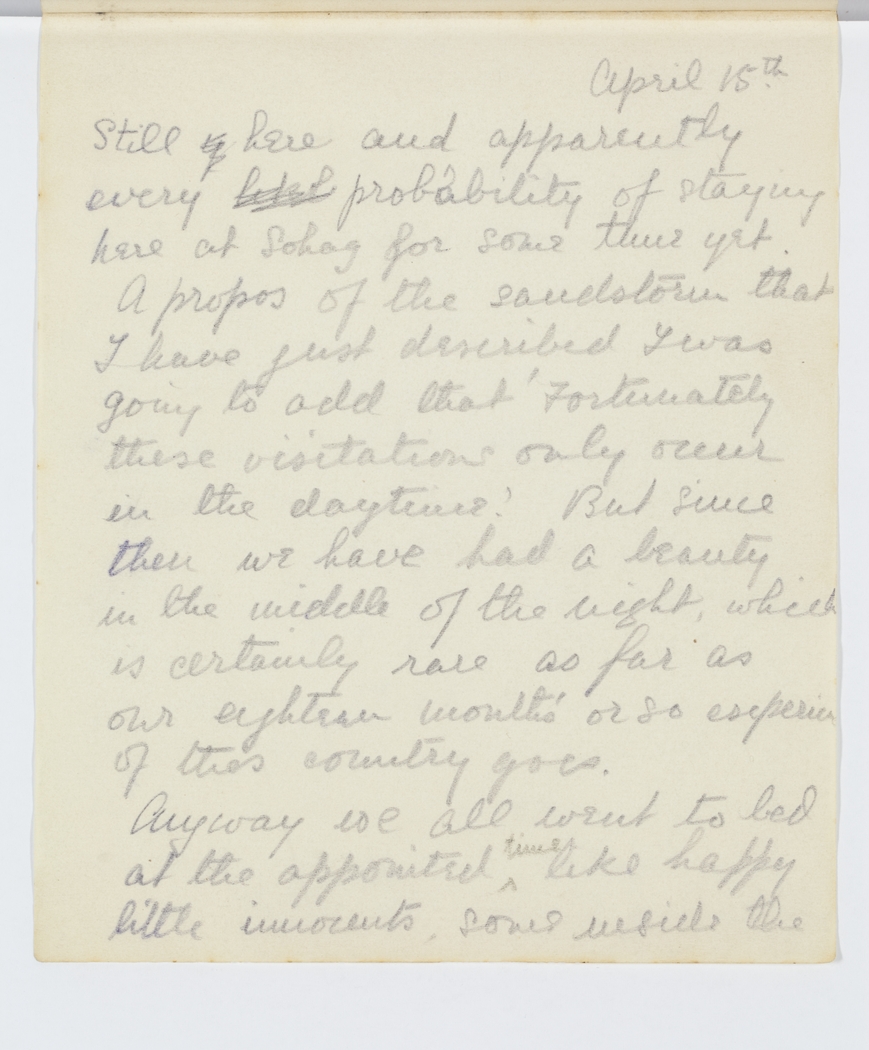 April 15th.
Still here and apparently
every probability of staying
here at Sohag for some time yet.
A propos of the sandstorm that
I have just described I was
going to add that 'Fortunately
these visitations only occur
in the daytime.' But since
then we have had a beauty
in the middle of the night, which
is certainly rare as far as
our eighteen months' or so experien
of this country goes.
Anyway we all went to bed
at the appointed time, like happy
little innocents, some inside the